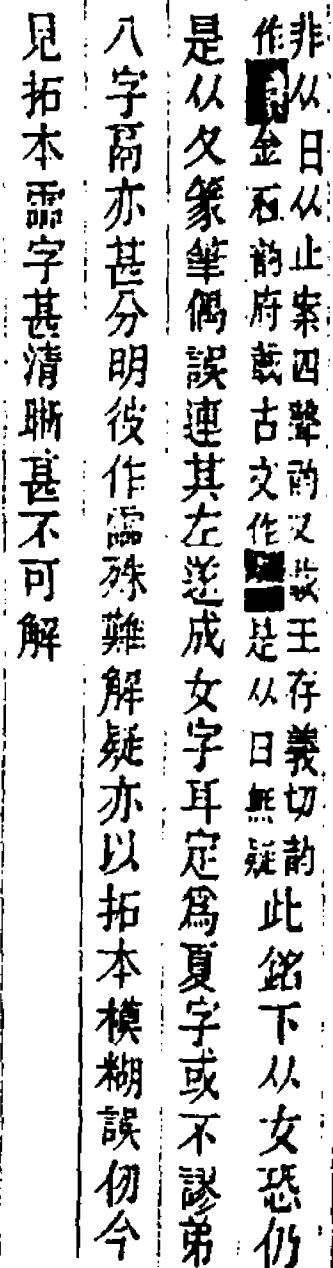 非从日从止案四聲韵又載王存義切韵
作金石韵府載古文作是从日無疑
此銘下从女恐仍
是从夂篆筆偶誤連其左遂成女字耳定爲夏字或不謬弟
八字亦甚分明彼作霝殊難解疑亦以拓本模糊誤仞今
見拓本霝字甚清晰甚不可解